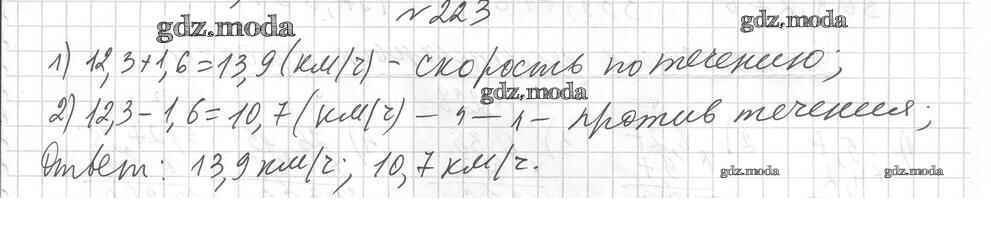 № 223
gdz.moda
gdz.moda
1) 12,3+1,6=13,9 (км/ч) - скорость по течению;
gdz.moda
2) 12,3-1,6=10,7 (км/ч) - 〃 - против течения;
Ответ: 13,9 км/ч; 10,7 км/ч.
gdz.moda
gdz.moda